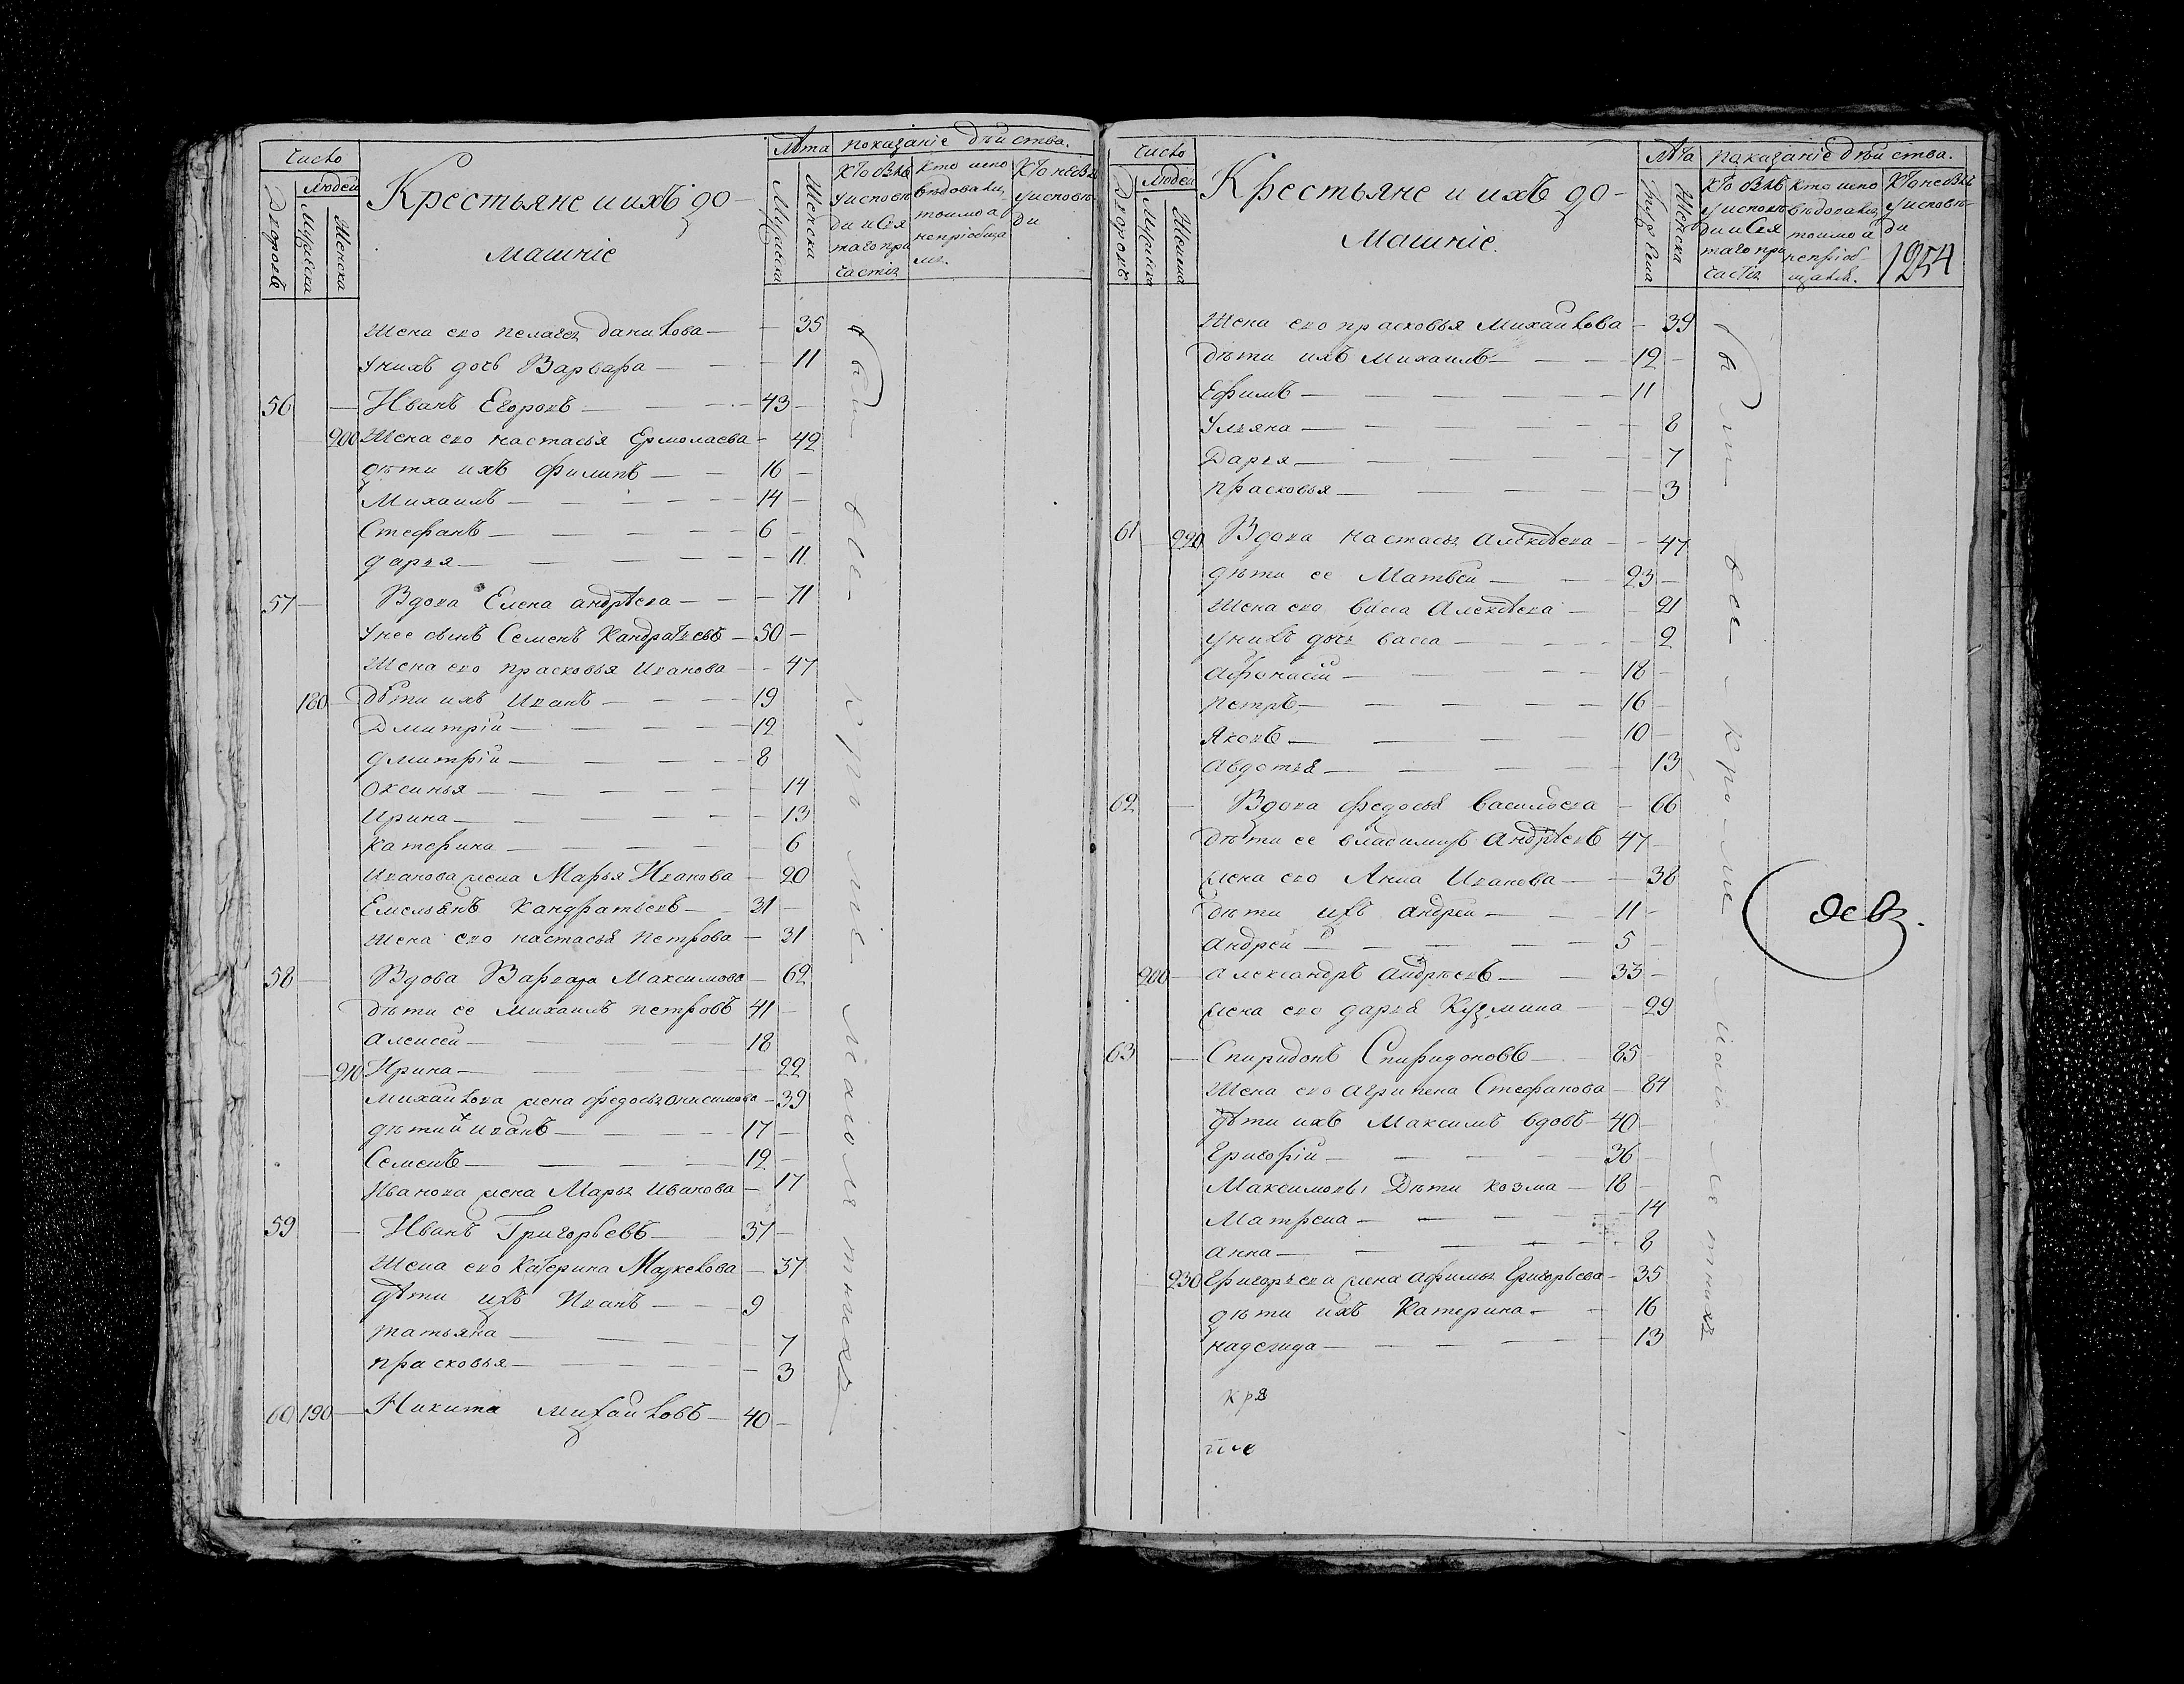 Число
Людей
Дворовъ
Мужеска
Женска
Крестьяне и ихъ до-
машніе
Лѣта
Мужеска
Женска
Показаніе дѣйства.
Кто былъ у исповѣди и святаго причастія
Кто исповѣдовался, токмо а не пріобща
Кто не былъ у исповѣди
Жена его пелагея данилова — 35
у нихъ дочь Варвара — 11
56 — Иванъ Егоровъ — 43
200 Жена его настасья Ермолаева — 42
дѣти ихъ филипъ — 16
Михаилъ — 14
Стефанъ — 6
дарья — 11
57 — Вдова Елена андрѣева — 71
у нее сынъ Семенъ Кандратьевъ — 50
Жена его прасковья Иванова — 47
180 Дѣти ихъ Иванъ — 19
Дмитрій — 12
дмитрій — 8
оксинья — 14
Ирина — 13
катерина — 6
Иванова жена Марья Иванова — 20
Емельянъ Кандратьевъ — 31
Жена его настасья петрова — 31
58 — Вдова Варвара Максимова — 62
дѣти ее михаилъ петровъ 41
алексей — 18
210 Ирина — 22
Михайлова жена федосья онисимова — 39
дѣти й иванъ — 17
Семенъ — 12
Иванова жена Марья иванова — 17
59 — Иванъ Григорьевъ — 37
Жена его Катерина — 37
дѣти ихъ Иванъ — 9
татьяна — 7
прасковья — 3
60 190 — Никита михайловъ — 40
были все кроме малолетнихъ
Число
Людей
Дворовъ
Мужеска
Женска
Крестьяне и ихъ до-
машніе.
Лѣта
Женска
Показаніе дѣйства.
Кто былъ у исповѣди и святаго причастія
Кто исповѣдовался, токмо а не пріобщался.
Кто не былъ у исповѣди
1254
Жена его прасковья Михайлова — 39
дѣти ихъ Михаилъ — 12
Ефимъ — 11
Ульяна — 8
Дарья — 7
прасковья — 3
61 — 220 Вдова настасья алексѣева — 47
дѣти ее Матвей — 23
Жена его васса Алексѣева — 21
у нихъ дочь васса — 2
афонасій — 18
петръ — 16
яковъ — 10
авдотья — 13
62 — Вдова федосья василоева — 66
дѣти ее владимиръ Андрѣевъ 47
жена его Анна Иванова — 38
дѣти ихъ андрей — 11
андрей — 5
200 — александръ андрѣевъ — 33
жена его дарья Кузмина — 29
63 — Спиридонъ Спиридоновъ — 85
Жена его агрипена Стефанова — 84
дѣти ихъ Максимъ вдовъ — 40
Григорій — 36
Максимовы Дѣти козма — 18
Матрена — 14
анна — 8
230 Григорьева жена афимья Григорьева — 35
дѣти ихъ Катерина — 16
надежда — 13
кря
были все кроме малолетнихъ